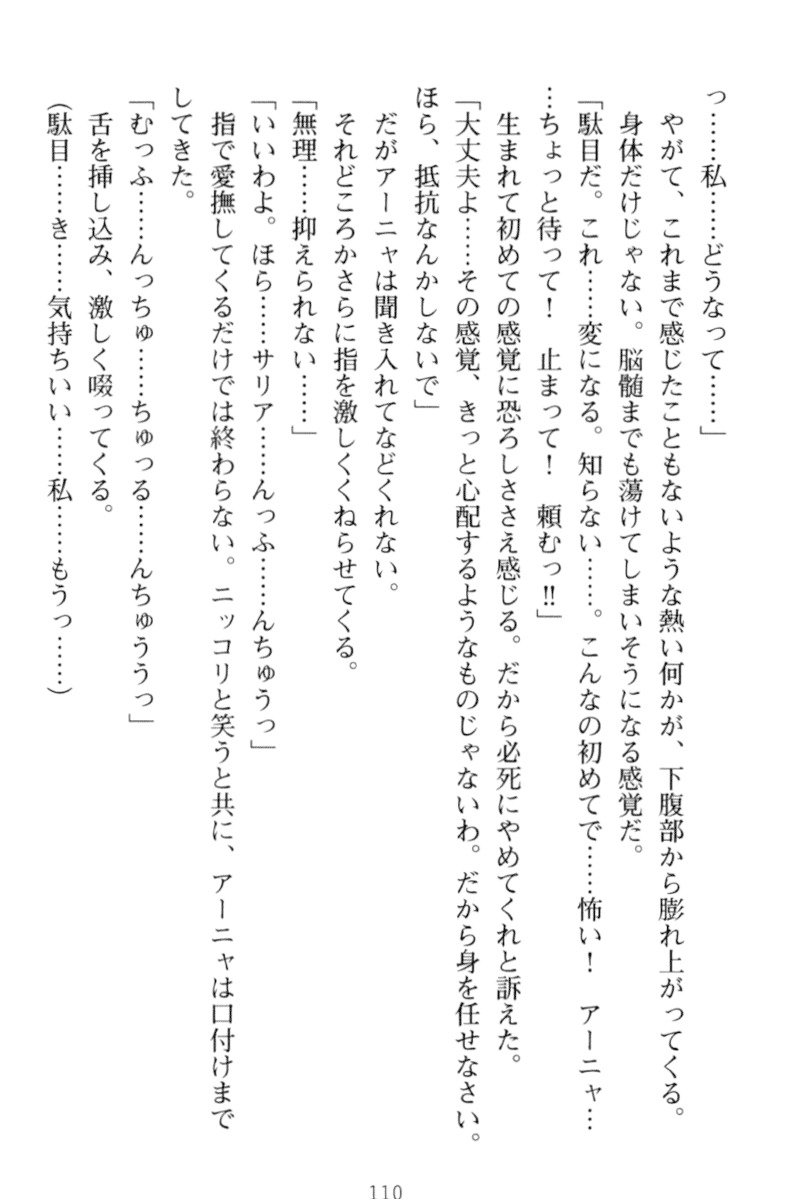 っ……私……どうなって……」
やがて、これまで感じたこともないような熱い何かが、下腹部から膨れ上がってくる。
身体だけじゃない。脳髄までも蕩けてしまいそうになる感覚だ。
「駄目だ。これ……変になる。知らない……。こんなの初めてで……怖い！　アーニャ…
…ちょっと待って！　止まって！　頼むっ!!」
生まれて初めての感覚に恐ろしささえ感じる。だから必死にやめてくれと訴えた。
「大丈夫よ……その感覚、きっと心配するようなものじゃないわ。だから身を任せなさい。
ほら、抵抗なんかしないで」
だがアーニャは聞き入れてなどくれない。
それどころかさらに指を激しくくねらせてくる。
「無理……抑えられない……」
「いいわよ。ほら……サリア……んっふ……んちゅうっ」
指で愛撫してくるだけでは終わらない。ニッコリと笑うと共に、アーニャは口付けまで
してきた。
「むっふ……んっちゅ……ちゅっる……んちゅううっ」
舌を挿し込み、激しく啜ってくる。
（駄目……き……気持ちいい……私……もうっ……）
110